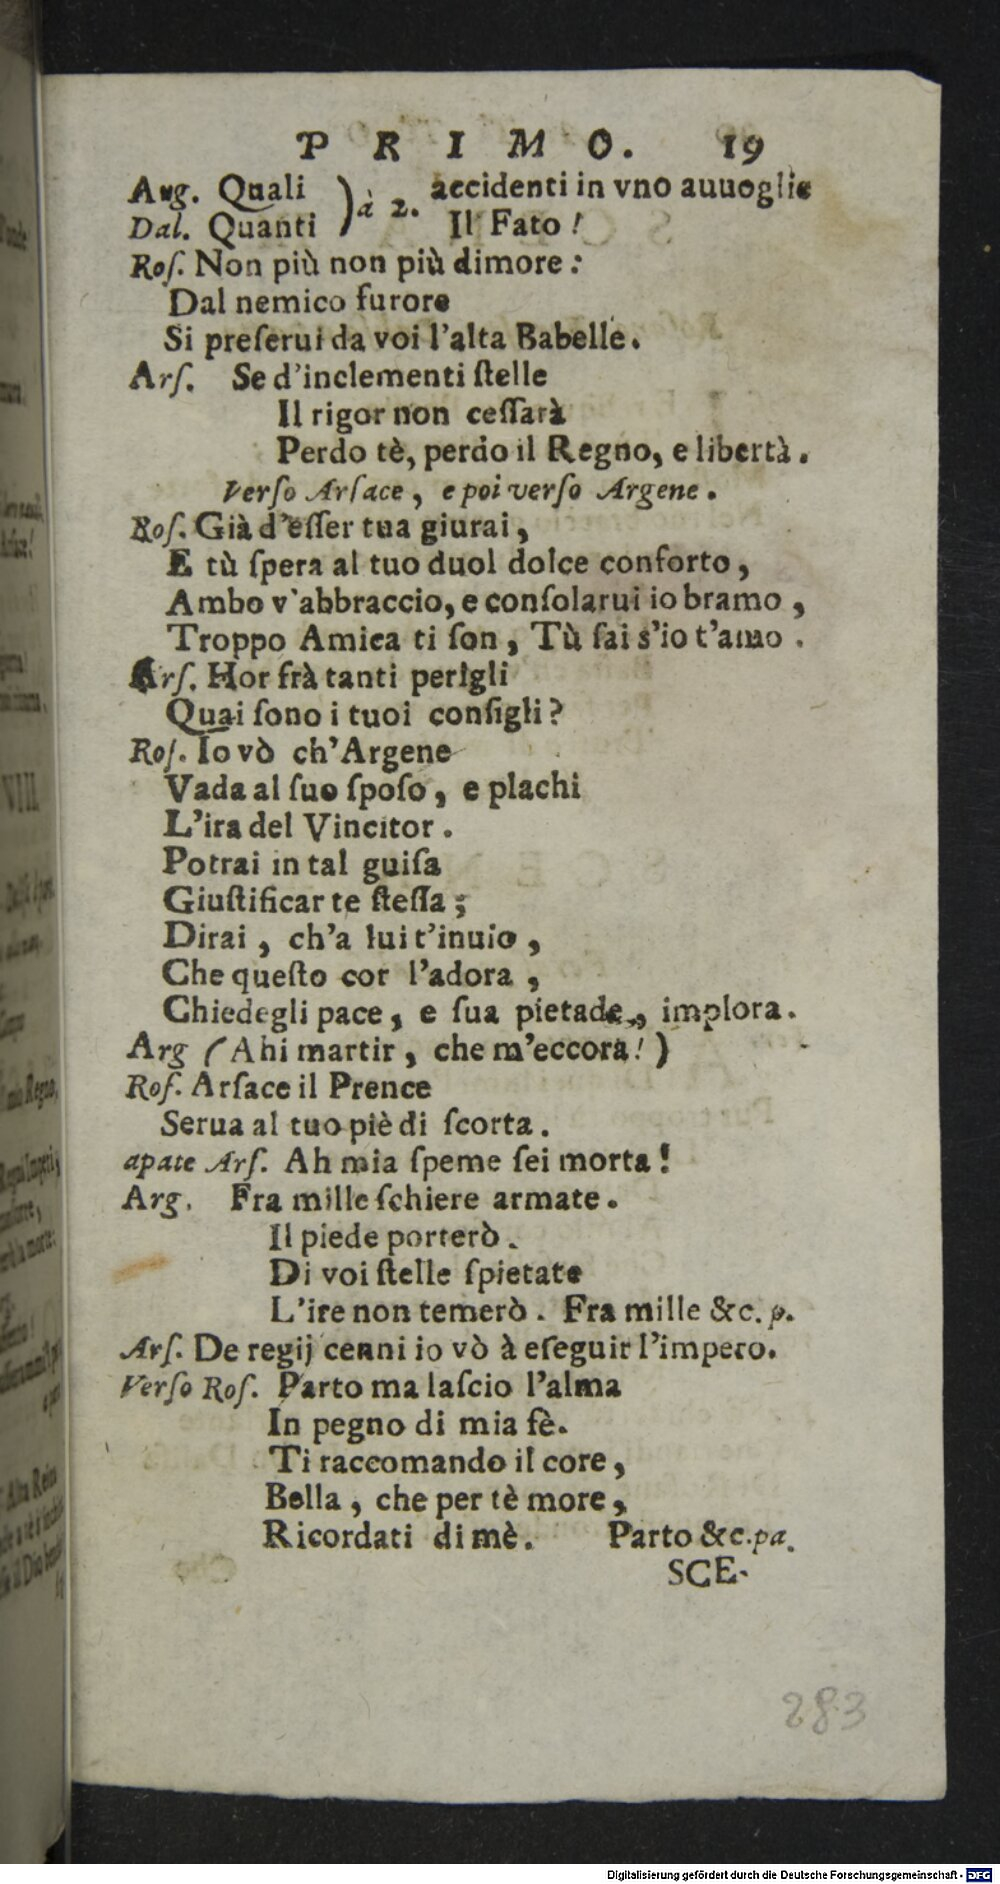 PRIMO. 19
Aug. Quali )à 2. accidenti in vno auuoglie
Dal. Quanti Il Fato!
Roſ. Non più non più dimore:
Dal nemico furore
Si preſerui da voi l'alta Babelle.
Arſ. Se d'inclementi ſtelle
Il rigor non ceſſarà
Perdo tè, perdo il Regno, e libertà.
Verſo Arſace, e poi verſo Argene.
Roſ. Già d'eſſer tua giurai,
E tù ſpera al tuo duol dolce conforto,
Ambo v'abbraccio, e conſolarui io bramo,
Troppo Amica ti ſon, Tù ſai s'io t'amo.
Arſ. Hor frà tanti perigli
Quai ſono i tuoi conſigli?
Roſ. Io vò ch'Argene
Vada al ſuo ſpoſo, e plachi
L'ira del Vincitor.
Potrai in tal guiſa
Giuſtificar te ſteſſa;
Dirai, ch'a lui t'inuio,
Che queſto cor l'adora,
Chiedegli pace, e ſua pietade, implora.
Arg (Ahi martir, che m'eccora!)
Roſ. Arſace il Prence
Serua al tuo piè di ſcorta.
apate Arſ. Ah mia ſpeme ſei morta!
Arg. Fra mille ſchiere armate.
Il piede porterò.
Di voi ſtelle ſpietate
L'ire non temerò. Fra mille &c. p.
Arſ. De regij cenni io vò à eſeguir l'impero.
Verſo Roſ. Parto ma laſcio l'alma
In pegno di mia fè.
Ti raccomando il core,
Bella, che per tè more,
Ricordati di mè. Parto &c. pa.
SCE-
283
Digitalisierung gefördert durch die Deutsche Forschungsgemeinschaft - DFG